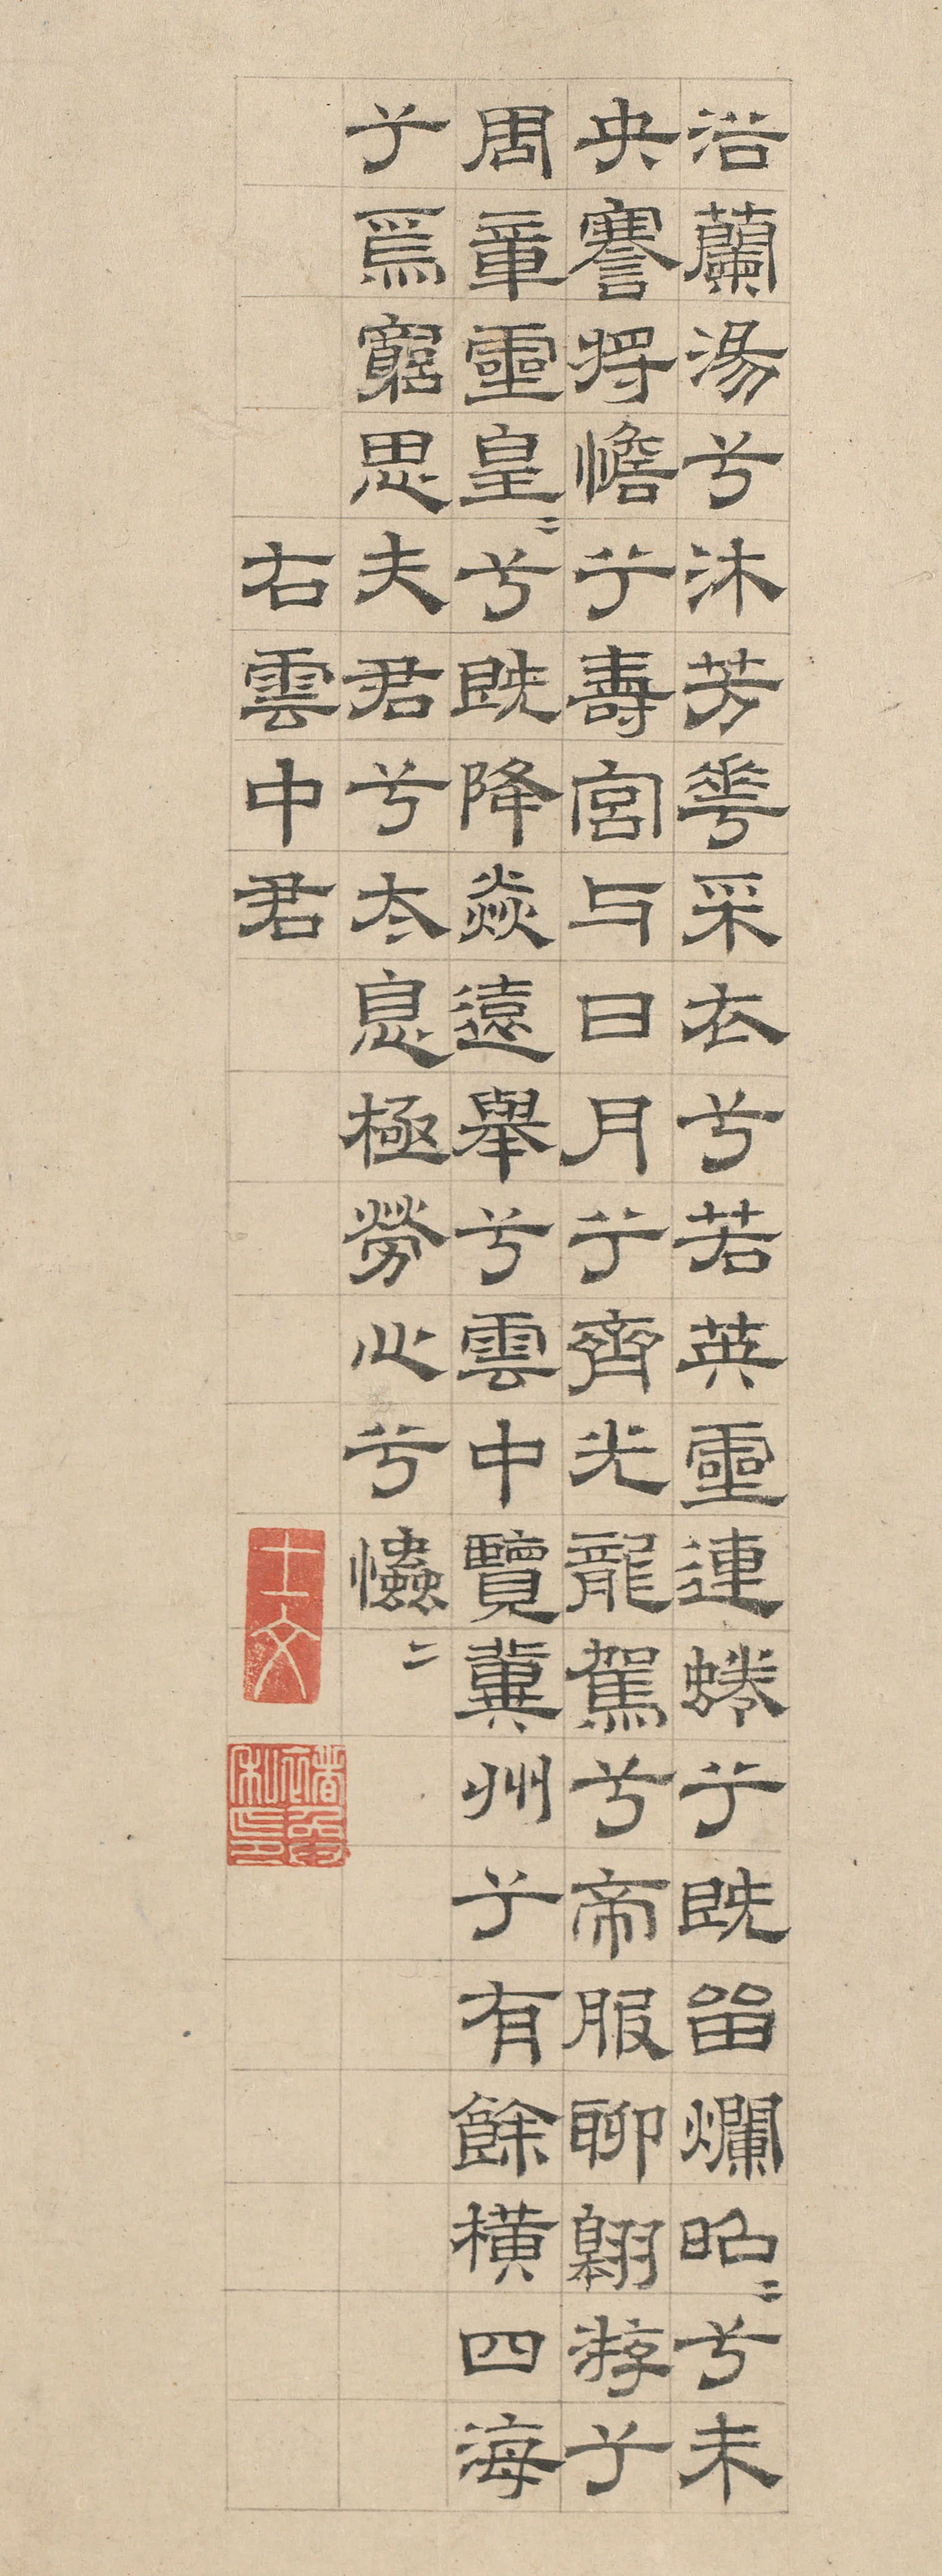 浴蘭湯兮沐芳華采衣兮若英靈連蜷兮既畱爛昭〻兮未
央謇將憺兮壽宮与日月兮齊光龍駕兮帝服聊翱游兮
周章靈皇〻兮既降猋遠舉兮雲中覽冀州兮有餘橫四海
兮焉窮思夫君兮太息極勞心兮爞〻
右雲中君
士文